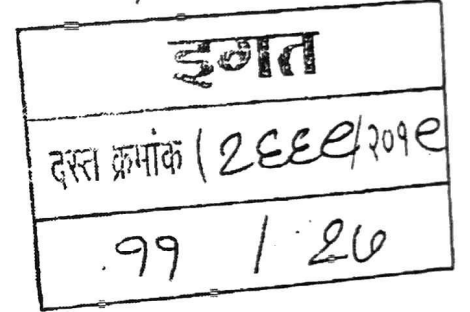 इगत
दस्त क्रमांक (२६६९/२०१९
११ / २७